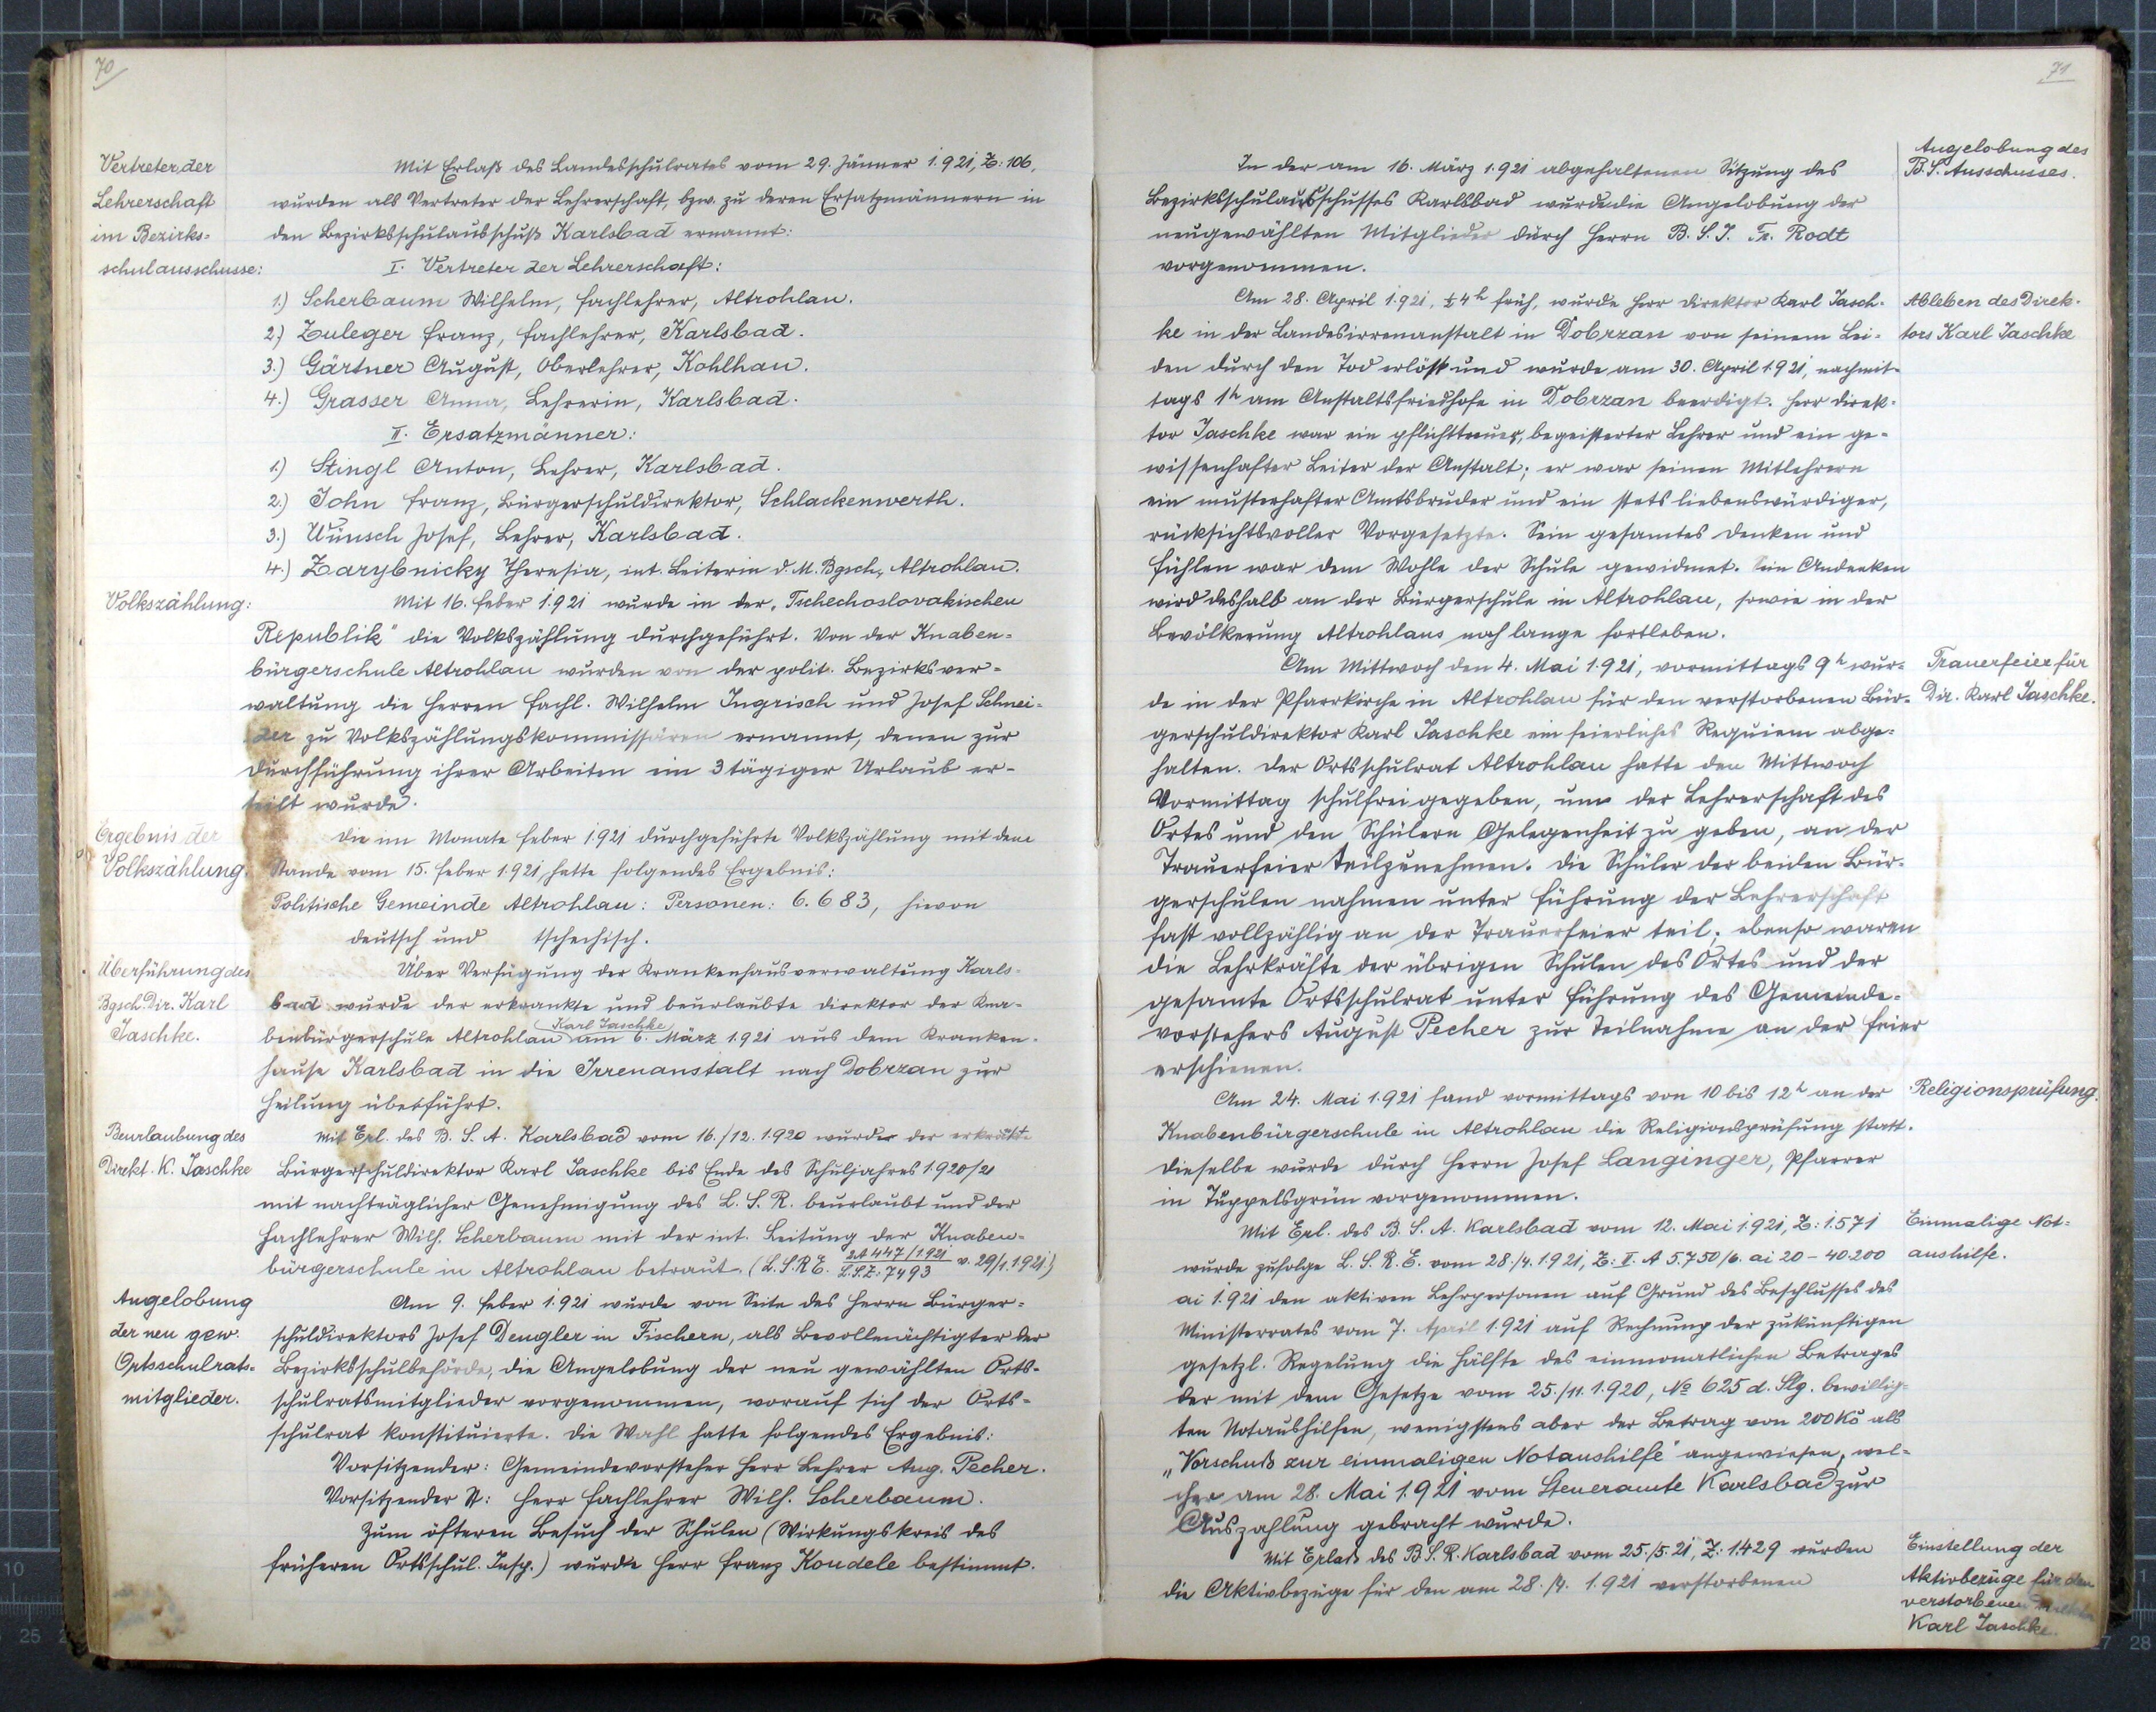 70
Vertreter der
Lehrerschaft
im Bezirks=
schulausschusse:
Mit Erlaß des Landesschulrates vom 29. Jänner 1921, Z: 106,
wurden als Vertreter der Lehrerschaft, bzw. zu deren Ersatzmännern in
den Bezirksschulausschuß Karlsbad ernannt:
I. Vertreter der Lehrerschaft:
1.) Scherbaum Wilhelm, Fachlehrer, Altrohlau.
2.) Zuleger Franz, Fachlehrer, Karlsbad.
3.) Gärtner August, Oberlehrer, Kohlhau.
4.) Grasser Anna, Lehrerin, Karlsbad.
II. Ersatzmänner:
1.) Stingl Anton, Lehrer, Karlsbad.
2.) John Franz, Bürgerschuldirektor, Schlackenwerth.
3.) Wünsch Josef, Lehrer, Karlsbad.
4.) Zarybnicky Theresia, int. Leiterin d. M. Bgsch, Altrohlau.
Volkszählung:
Mit 16. Feber 1921 wurde in der „Tschechoslovakischen
Republik" die Volkszählung durchgeführt. Von der Knaben=
bürgerschule Altrohlau wurden von der polit. Bezirksver=
waltung die Herren Fachl. Wilhelm Ingrisch und Josef Schnei=
der zu Volkszählungskommissären ernannt, denen zur
Durchführung ihrer Arbeiten ein 3tägiger Urlaub er=
teilt wurde.
Ergebnis der
Volkszählung.
Die im Monate Feber 1921 durchgeführte Volkszählung mit dem
Stande vom 15. Feber 1921 hatte folgendes Ergebnis:
Politische Gemeinde Altrohlau: Personen: 6.683, hievon
deutsch und tschechisch.
Überführung des
Bgsch. Dir. Karl
Jaschke.
Über Verfügung der Krankenhausverwaltung Karls=
bad wurde der erkrankte und beurlaubte Direktor der Kna=
benbürgerschule Altrohlau Karl Jaschke am 6. März 1921 aus dem Kranken=
hause Karlsbad in die Irrenanstalt nach Dobrzan zur
Heilung überführt.
Beurlaubung des
Direkt. K. Jaschke
Mit Erl. des B. S. A. Karlsbad vom 16./12. 1920 wurde der erkrankte
Bürgerschuldirektor Karl Jaschke bis Ende des Schuljahres 1920/21
mit nachträglicher Genehmigung des L. S. R. beurlaubt und der
Fachlehrer Wilh. Scherbaum mit der int. Leitung der Knaben=
bürgerschule in Altrohlau betraut. (L. S. R. E. 2A 447/1921 L.S.Z: 7493 v. 29/1. 1921.)
Angelobung
der neu gew.
Ortsschulrats=
mitglieder.
Am 9. Feber 1921 wurde von Seite des Herrn Bürger=
schuldirektors Josef Dengler in Fischern, als Bevollmächtigter der
Bezirksschulbehörde, die Angelobung der neu gewählten Orts=
schulratsmitglieder vorgenommen, worauf sich der Orts=
schulrat konstituierte. Die Wahl hatte folgendes Ergebnis:
Vorsitzender: Gemeindevorsteher Herr Lehrer Aug. Pecher.
Vorsitzender St: Herr Fachlehrer Wilh. Scherbaum.
Zum öfteren Besuch der Schulen (Wirkungskreis des
früheren Ortsschul. Insp.) wurde Herr Franz Koudele bestimmt.
71
Angelobung des
B. S. Ausschusses.
In der am 16. März 1921 abgehaltenen Sitzung des
Bezirksschulausschusses Karlsbad wurde die Angelobung der
neugewählten Mitglieder durch Herrn B. S. I. Fr. Rodt
vorgenommen.
Ableben des Direk=
tors Karl Jaschke
Am 28. April 1921, ½4h früh, wurde Herr Direktor Karl Jasch=
ke in der Landesirrenanstalt in Dobrzan von seinem Lei=
den durch den Tod erlöst und wurde am 30. April 1921, nachmit=
tags 1h am Anstaltsfriedhofe in Dobrzan beerdigt. Herr Direk=
tor Jaschke war ein pflichttreuer, begeisterter Lehrer und ein ge=
wissenhafter Leiter der Anstalt; er war seinen Mitlehrern
ein musterhafter Amtsbruder und ein stets liebenswürdiger,
rücksichtsvoller Vorgesetzte. Sein gesamtes Denken und
Fühlen war dem Wohle der Schule gewidmet. Sein Andenken
wird deshalb an der Bürgerschule in Altrohlau, sowie in der
Bevölkerung Altrohlaus noch lange fortleben.
Trauerfeier für
Dir. Karl Jaschke.
Am Mittwoch den 4. Mai 1921, vormittags 9h wur=
de in der Pfarrkirche in Altrohlau für den verstorbenen Bür=
gerschuldirektor Karl Jaschke ein feierliches Requiem abge=
halten. Der Ortsschulrat Altrohlau hatte den Mittwoch
Vormittag schulfrei gegeben, um der Lehrerschaft des
Ortes und den Schülern Gelegenheit zu geben, an der
Trauerfeier teilzunehmen. Die Schüler der beiden Bür=
gerschulen nahmen unter Führung der Lehrerschaft
fast vollzählig an der Trauerfeier teil; ebenso waren
die Lehrkräfte der übrigen Schulen des Ortes und der
gesamte Ortsschulrat unter Führung des Gemeinde=
vorstehers August Pecher zur Teilnahme an der Feier
erschienen.
Religionsprüfung.
Am 24. Mai 1921 fand vormittags von 10 bis 12h an der
Knabenbürgerschule in Altrohlau die Religionsprüfung statt.
Dieselbe wurde durch Herrn Josef Langinger, Pfarrer
in Tüppelsgrün vorgenommen.
Einmalige Not=
aushilfe.
Mit Erl. des B. S. A. Karlsbad vom 12. Mai 1921, Z: 1571
wurde zufolge L. S. R. E. vom 28./4. 1921, Z: I. A 5.750/6. ai 20 – 40.200
ai 1921 den aktiven Lehrpersonen auf Grund des Beschlusses des
Ministerrates vom 7. April 1921 auf Rechnung der zukünftigen
gesetzl. Regelung die Hälfte des einmonatlichen Betrages
der mit dem Gesetze vom 25./11. 1920, № 625 d. Slg. bewillig=
ten Notaushilfen, wenigstens aber der Betrag von 200 Kč als
„Vorschuß zur einmaligen Notaushilfe" angewiesen, wel=
cher am 28. Mai 1921 vom Steueramte Karlsbad zur
Auszahlung gebracht wurde.
Einstellung der
Aktivbezüge für den
verstorbenen Direktor
Karl Jaschke.
Mit Erlaß des B. S. R. Karlsbad vom 25./5. 21, Z: 1429 wurden
die Aktivbezüge für den am 28./4. 1921 verstorbenen
10
25
27 28